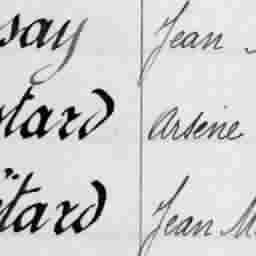 say Jean
tard Arsène
tard Jean M